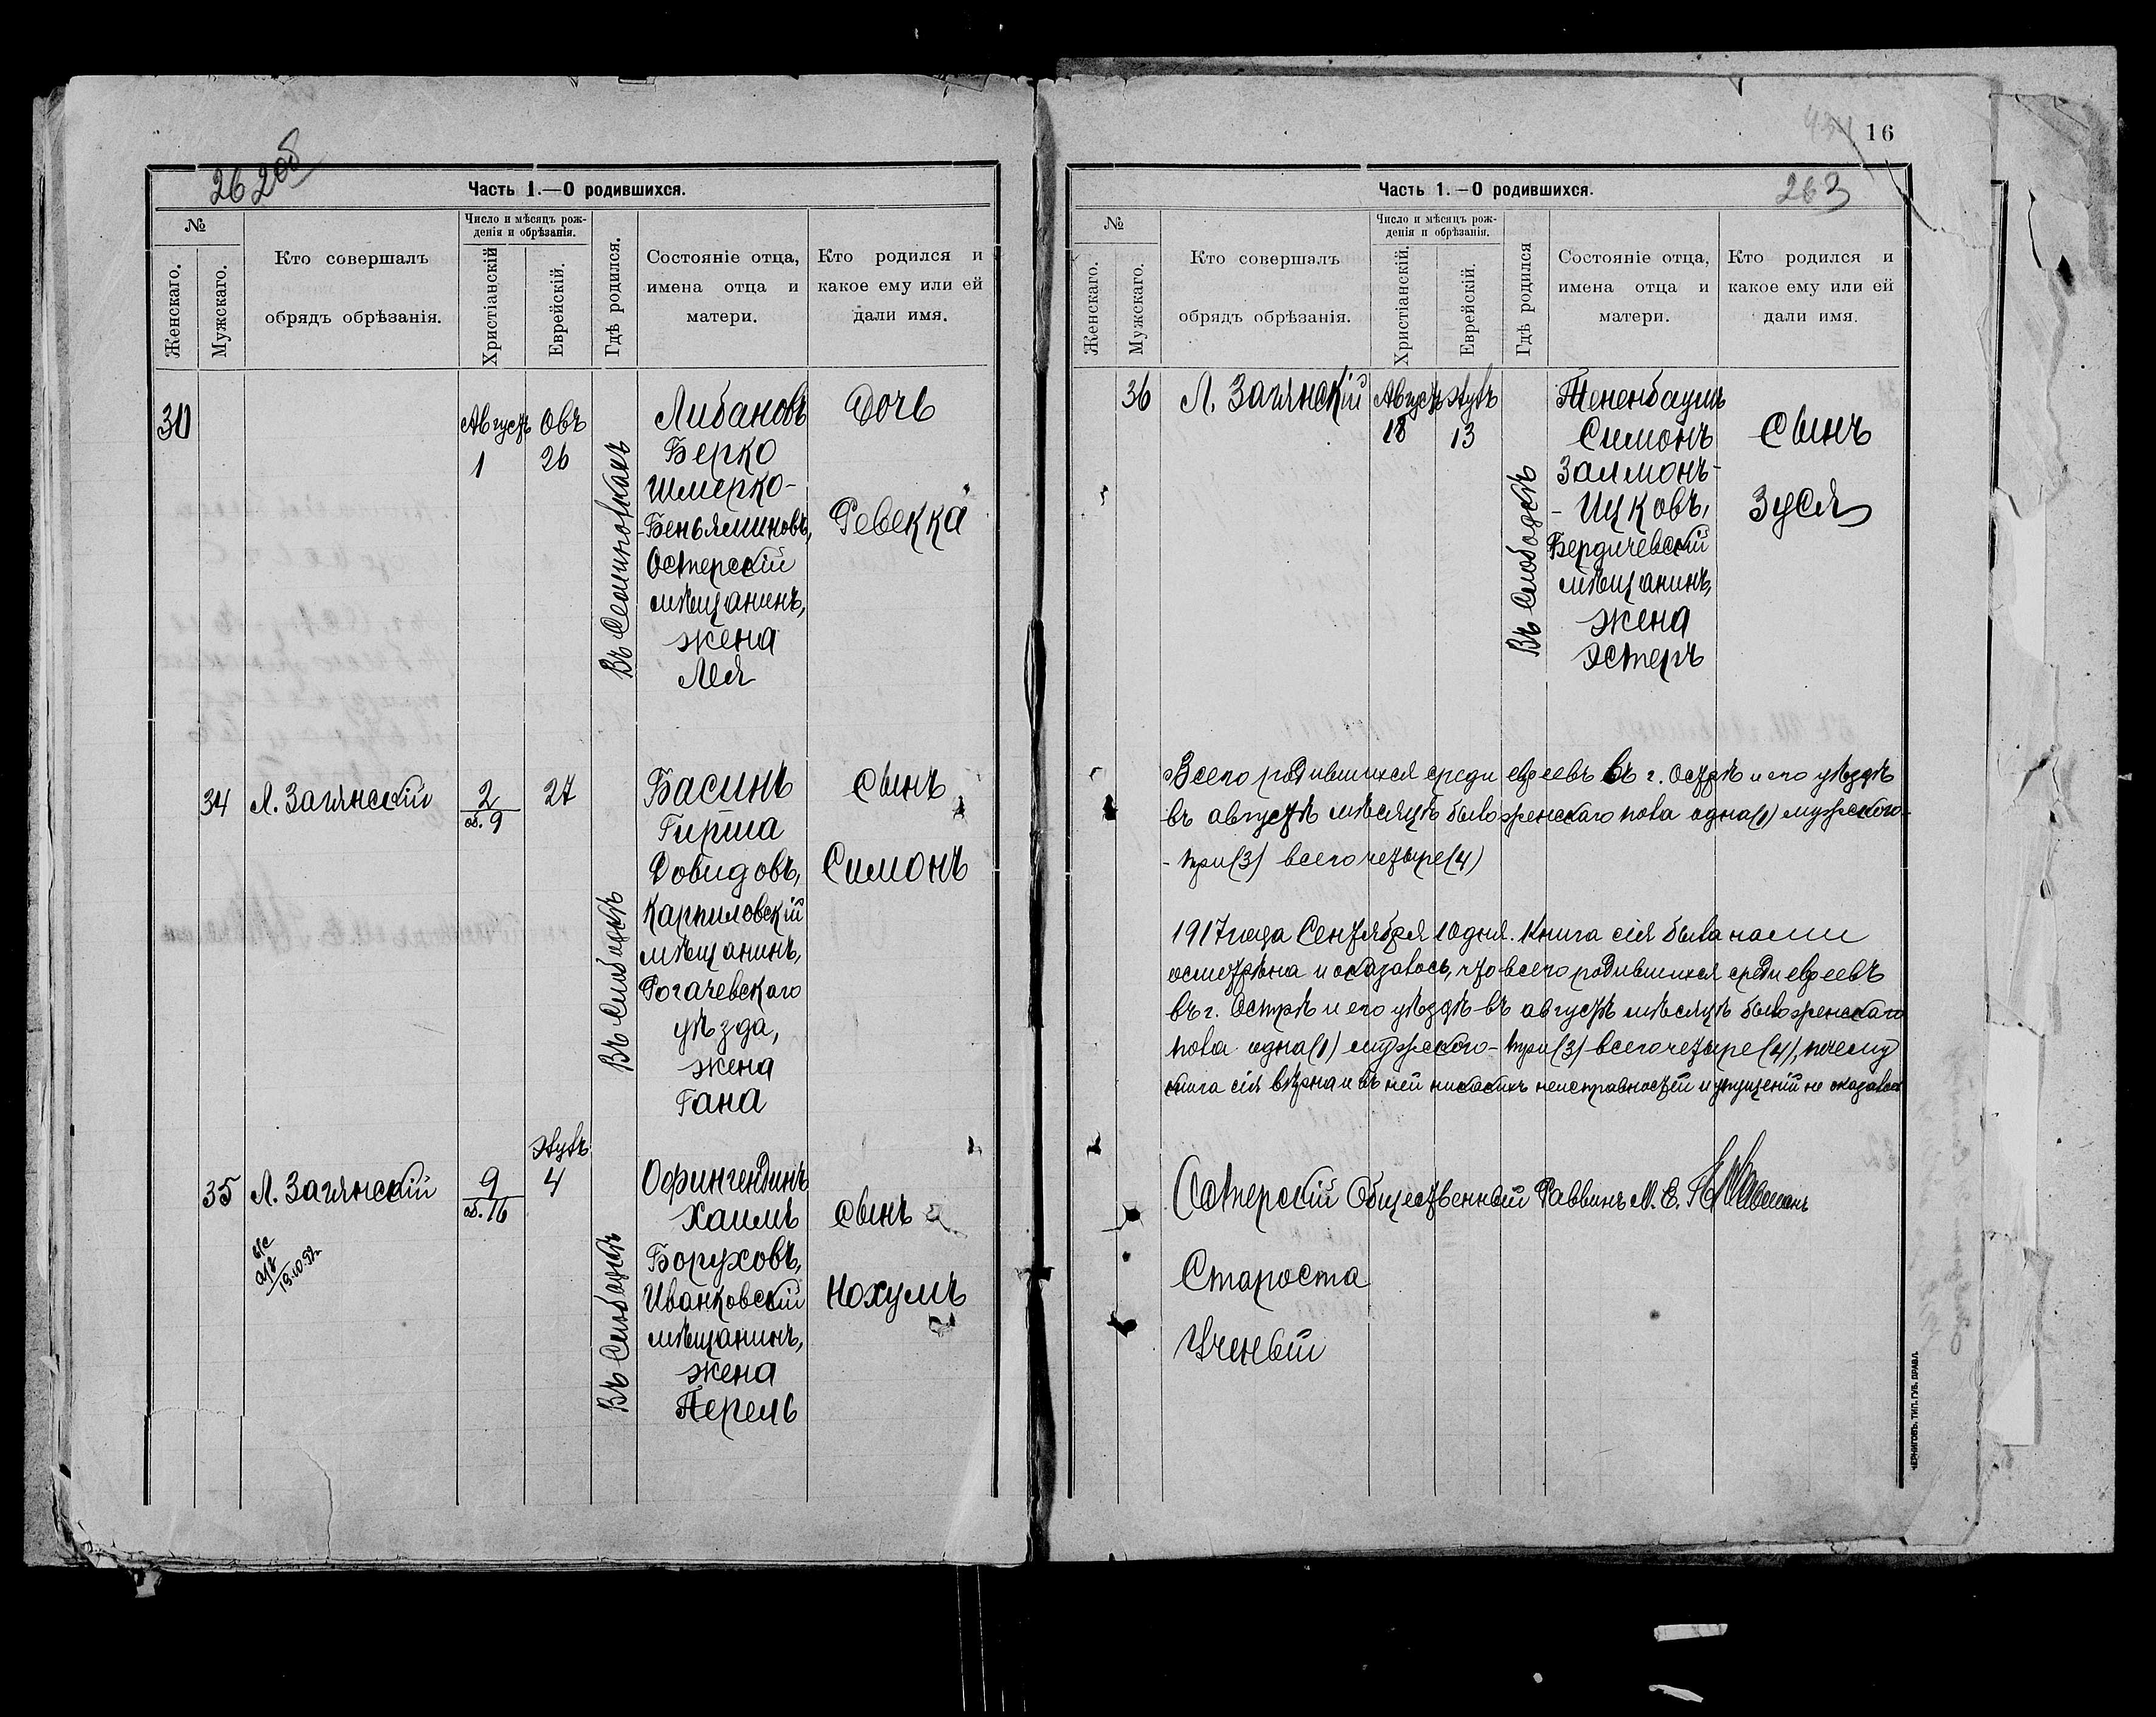 262об
Часть 1.—О родившихся.
№
Женскаго.
Мужскаго.
Кто совершалъ
обрядъ обрѣзанія.
Число и мѣсяцъ рож-
денія и обрѣзанія.
Христіанскій
Еврейскій.
Гдѣ родился.
Состояніе отца,
имена отца и
матери.
Кто родился и
какое ему или ей
дали имя.
30
Августъ
1
Овъ
26
Либановъ
Берко
Шмерко-
-Беньяминовъ,
Остерскій
мѣщанинъ,
жена
Лея
Дочь
Ревекка
34
Л. Загянскій
2
об. 9
27
Въ Слободкѣ
Басинъ
Гирша
Довидовъ,
Карпиловскій
мѣщанинъ,
Рогачевскаго
уѣзда,
жена
Гана
Сынъ
Симонъ
35
Л. Загянскій
9
об. 16
Элулъ
4
Въ Слободкѣ
Офингендинъ
Хаимъ
Боруховъ,
Иванковскій
мѣщанинъ,
жена
Перель
Сынъ
Нохумъ
16
263
Часть 1.—О родившихся.
№
Женскаго.
Мужскаго.
Кто совершалъ
обрядъ обрѣзанія.
Число и мѣсяцъ рож-
денія и обрѣзанія.
Христіанскій.
Еврейскій.
Гдѣ родился
Состояніе отца,
имена отца и
матери.
Кто родился и
какое ему или ей
дали имя.
36
Л. Загянскій
Августъ
18
Элулъ
13
Въ Слободкѣ
Тененбаумъ
Симонъ
Залмонъ-
-Ицковъ,
Бердичевскій
мѣщанинъ,
жена
Эстеръ
Сынъ
Зуся
Всего родившихся среди евреевъ въ г. Острѣ и его уѣздѣ
въ августѣ мѣсяцѣ было женскаго пола одна (1) мужского-
- три (3) всего четыре (4)
1917 года Сентября 10 дня. Книга сія была нами
осмотрѣна и оказалось, что всего родившихся среди евреевъ
въ г. Острѣ и его уѣздѣ въ августѣ мѣсяцѣ было женскаго
пола одна (1) мужского- три (3) всего четыре (4), почему
книга сія вѣрна и въ ней никакихъ неисправностей и упущеній не оказалось
Остерскій Общественный Раввинъ М. Е.
Староста
Ученый
ЧЕРНИГОВЪ. ТИП. ГУБ. ПРАВЛ.